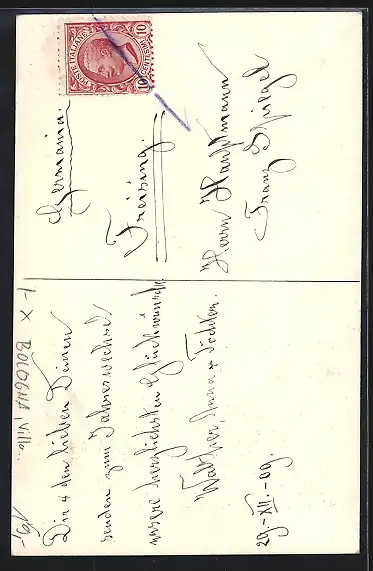 POSTE ITALIANE
10 CENTESIMI 10
Herrn Hauptmann
Franz Spiegel
Freising.
Germania.
Dir & den lieben Deinen
senden zum Jahreswechsel
unsere herzlichsten Glückwünsche
Walther, Anna & Töchter.
29.-XII.-09.
1- X BOLOGNA, Villa.
19,-